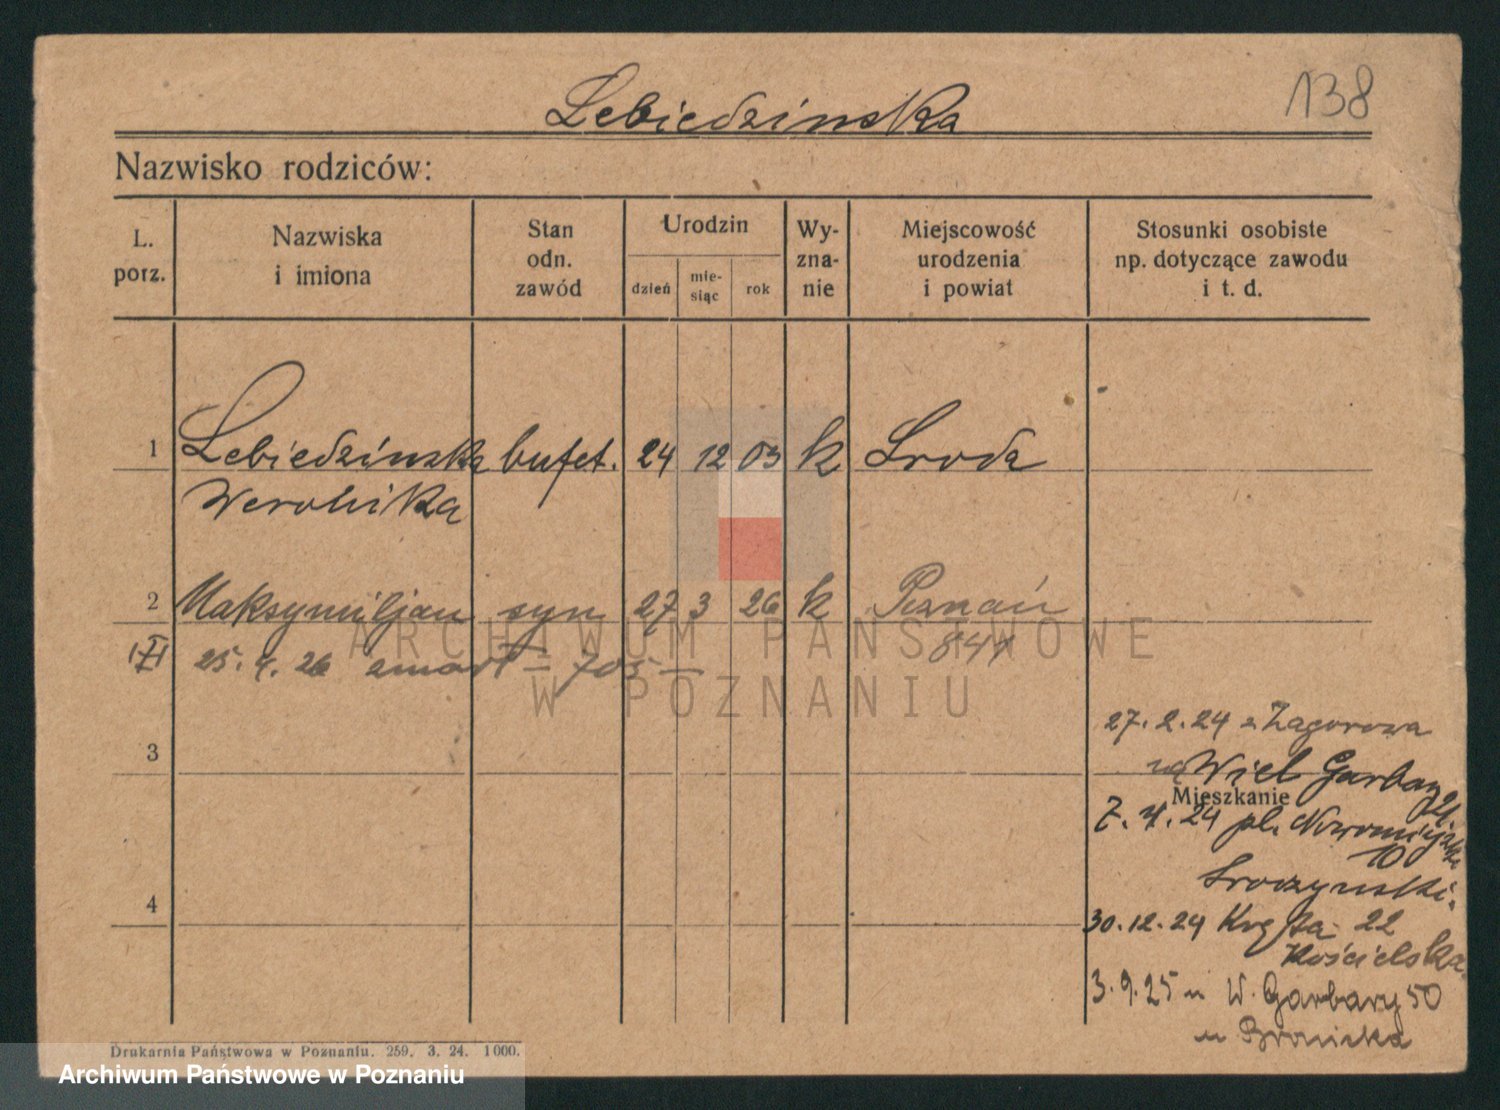 138
Lebiedzinska
Nazwisko rodziców:
L. porz.
Nazwiska i imiona
Stan odn. zawód
Urodzin
dzień
mie-siąc
rok
Wy-zna-nie
Miejscowość urodzenia i powiat
Stosunki osobiste np. dotyczące zawodu i t. d.
1 Lebiedzinska bufet. 24 12 03 k Sroda
Weronika
2 Maksymiljan syn 27 3 26 k Poznań
25.4.26 zmarł = 705 — 841
ARCHIWUM PAŃSTWOWE
W POZNANIU
27.2.24 z Zagorowa
3
Wiel Garbary 21.
Mieszkanie
7.4.24 pl. Nowomiejski
10
Sroczynski.
4
30.12.24 22
Kościelska
3.9.25 W. Garbary 50
Drukarnia Państwowa w Poznaniu. 259. 3. 24. 1000.
Archiwum Państwowe w Poznaniu